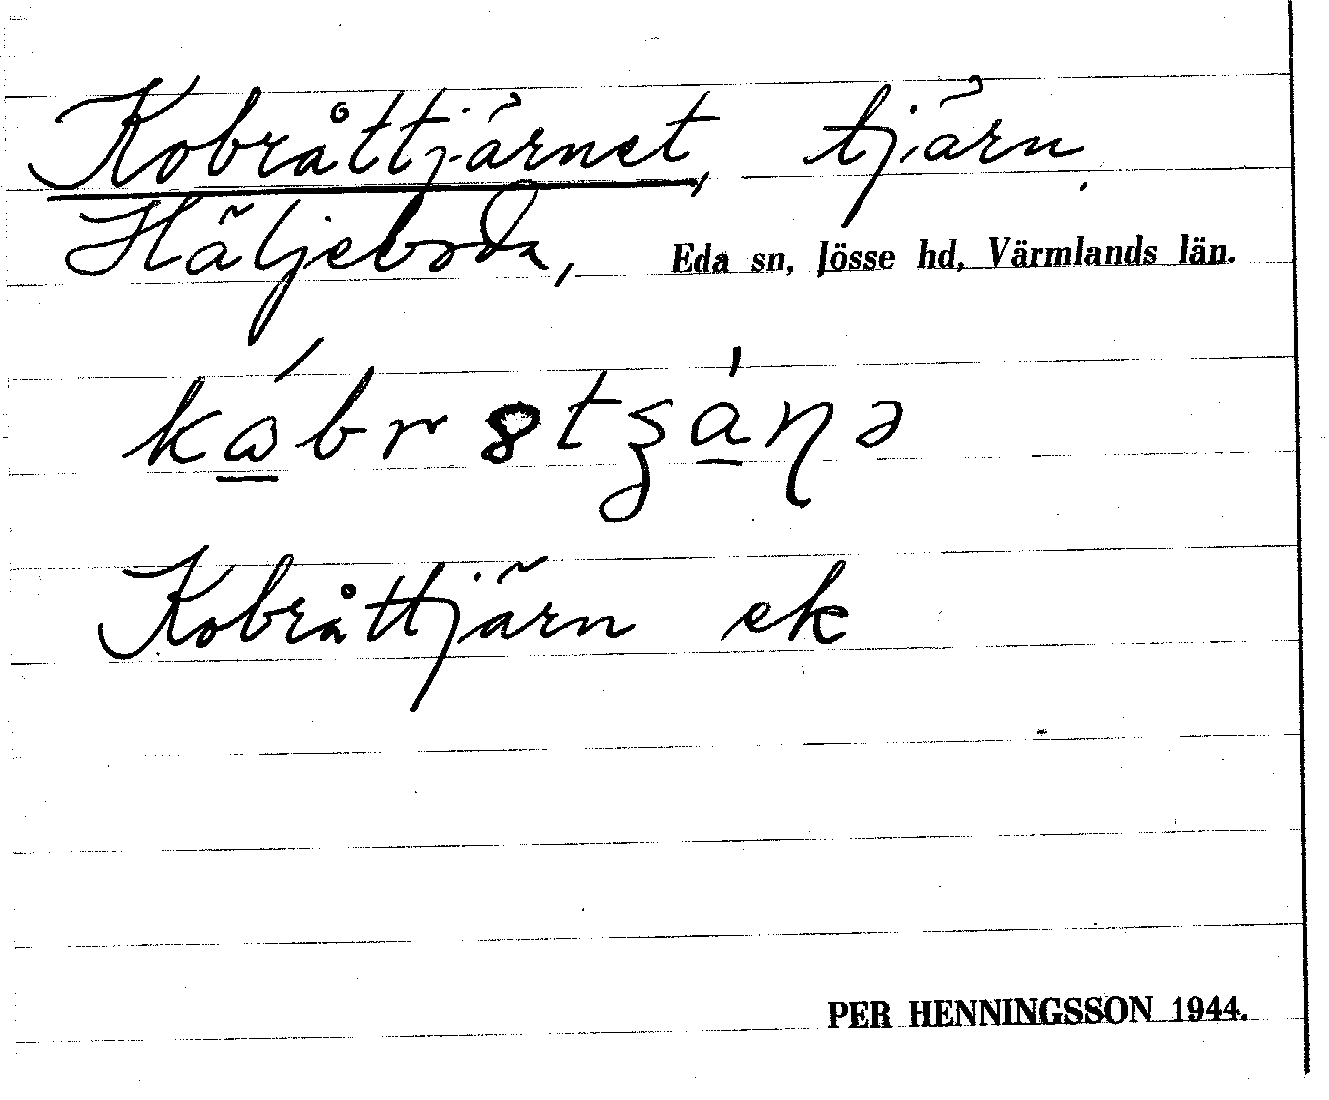 Kobråttjärnet, tjärn.
Häljeboda, Eda sn, Jösse hd, Värmlands län.
Kobråttjärn ek
PER HENNINGSSON 1944.